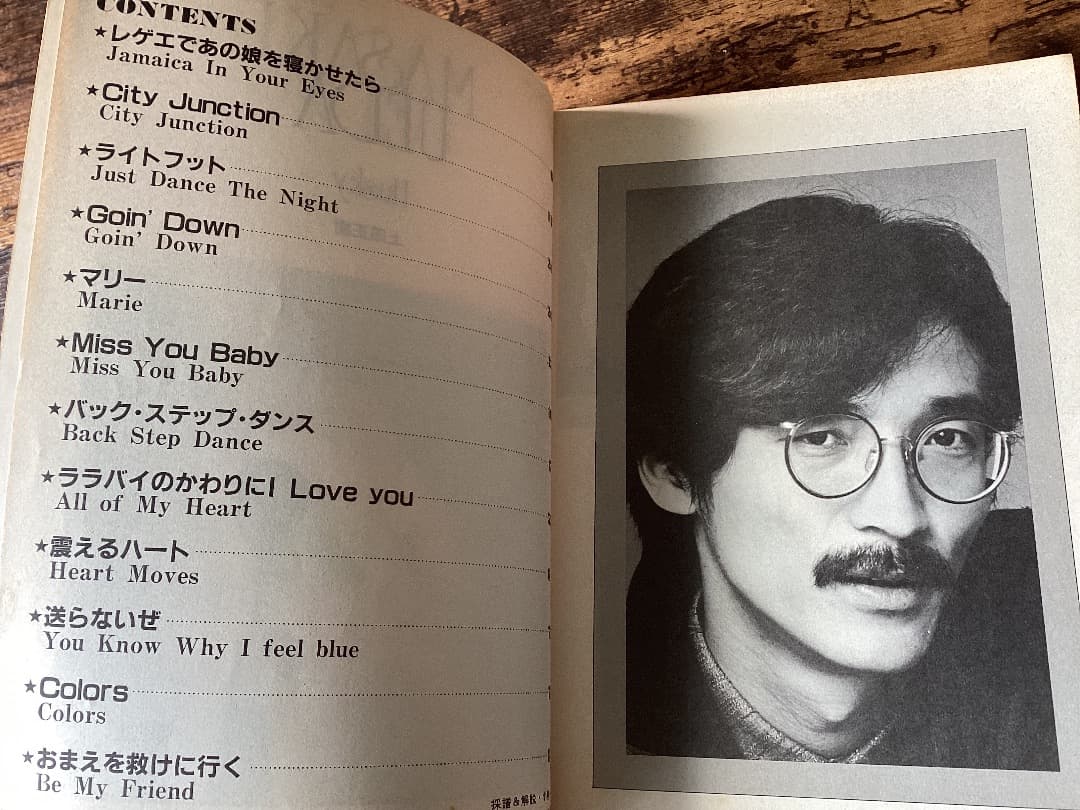 CONTENTS
★レゲエであの娘を寝かせたら
Jamaica In Your Eyes
★City Junction
City Junction
★ライトフット
Just Dance The Night
★Goin' Down
Goin' Down
★マリー
Marie
★Miss You Baby
Miss You Baby
★バック・ステップ・ダンス
Back Step Dance
★ララバイのかわりにI Love you
All of My Heart
★震えるハート
Heart Moves
★送らないぜ
You Know Why I feel blue
★Colors
Colors
★おまえを救けに行く
Be My Friend
採譜&解説・